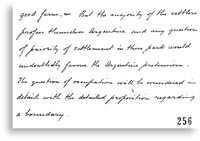 good farms. & But the majority of the settlers
profess themselves Argentine and any question
of priority of settlement in these parts would
undoubtedly favour the Argentine pretension.
The question of occupation will be considered in
detail with the detailed proposition regarding
a boundary.
256